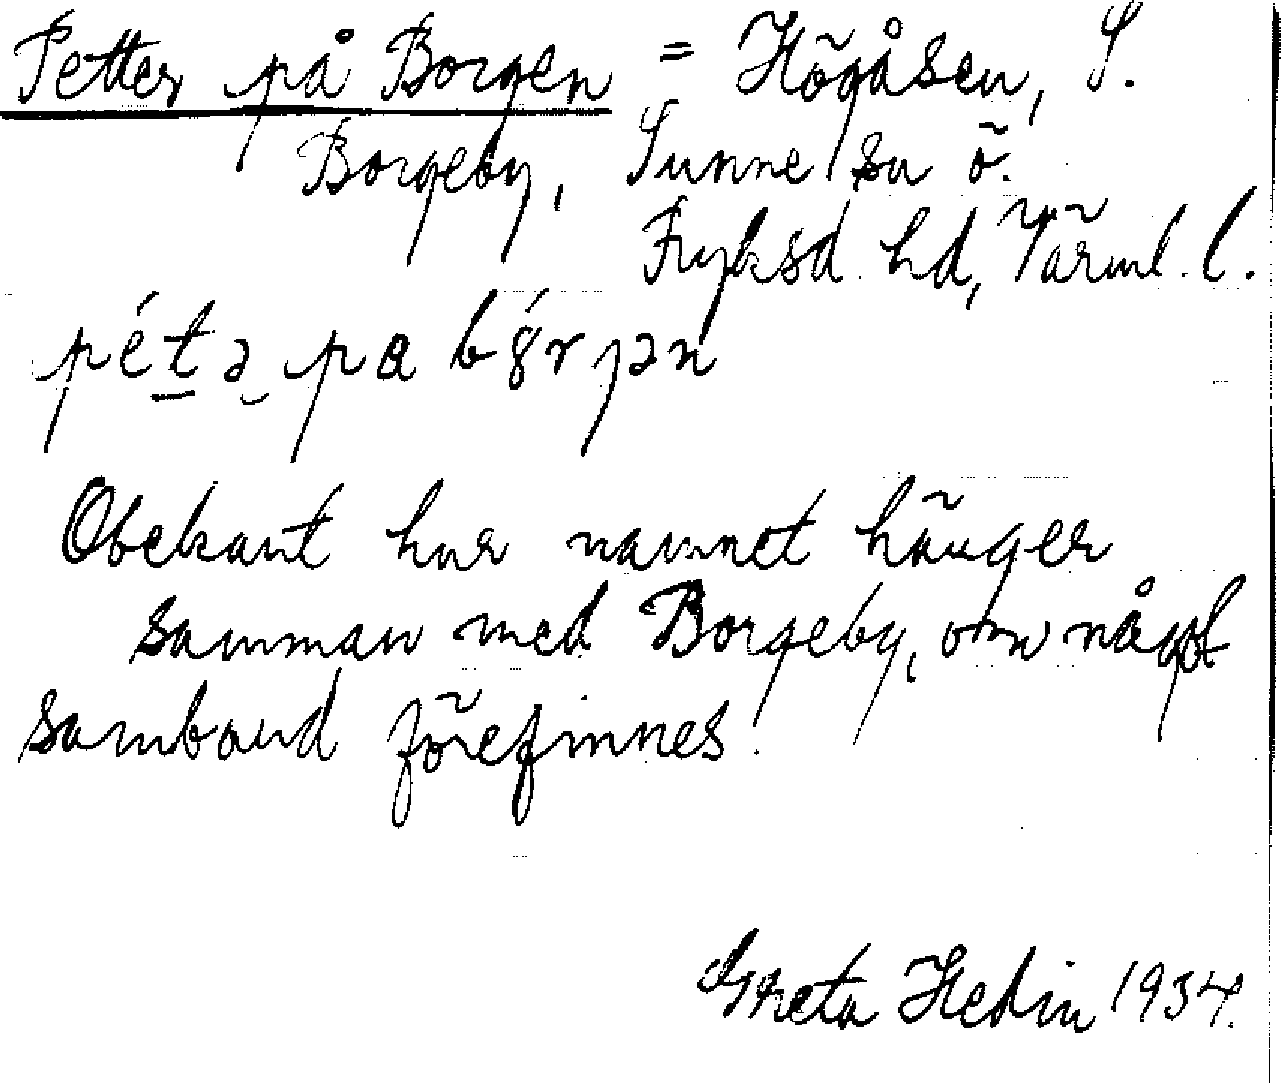 Petter på Borgen = Högåsen, S.
Borgeby, Sunne sn ö.
Fryksd. hd, Värml. l.
pét̲ə pa bǵrjən
Obekant hur namnet hänger
samman med Borgeby, om något
samband förefinnes.
Greta Hedin 1934.